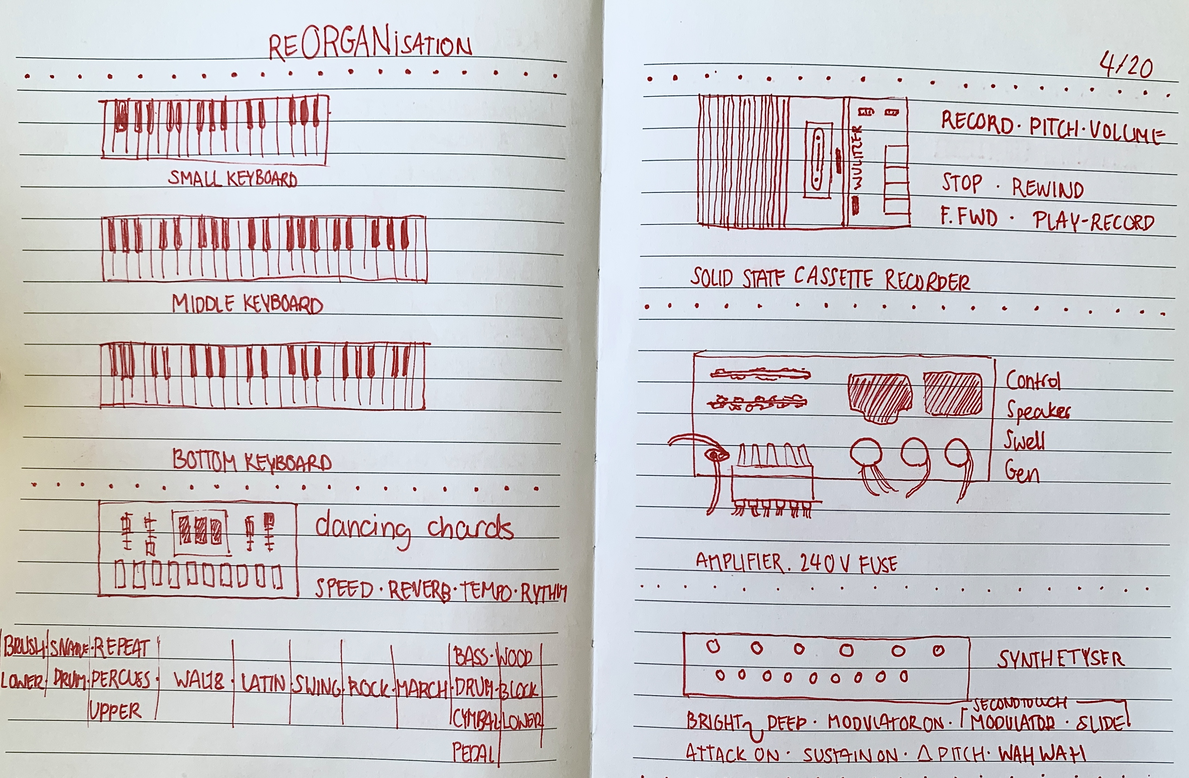 REORGANiSATION
SMALL KEYBOARD
MIDDLE KEYBOARD
BOTTOM KEYBOARD
dancing chards
SPEED · REVERB · TEMPO · RYTHM
BRUSH SNARE REPEAT BASS · WOOD
LOWER DRUM PERCUES LATIN SWING ROCK MARCH DRUM BLOCK
UPPER CYMBAL LOWER
PEDAL
4/20
RECORD · PITCH · VOLUME
WULITZER
STOP · REWIND
F. FWD · PLAY-RECORD
SOLID STATE CASSETTE RECORDER
Control
Speaker
Swell
Gen
AMPLIFIER. 240 V FUSE
SYNTHETYSER
SECONDTOUCH
BRIGHT DEEP · MODULATOR ON · MODULATOR · SLIDE
ATTACK ON · SUSTAIN ON · Δ PITCH · WAH WAH